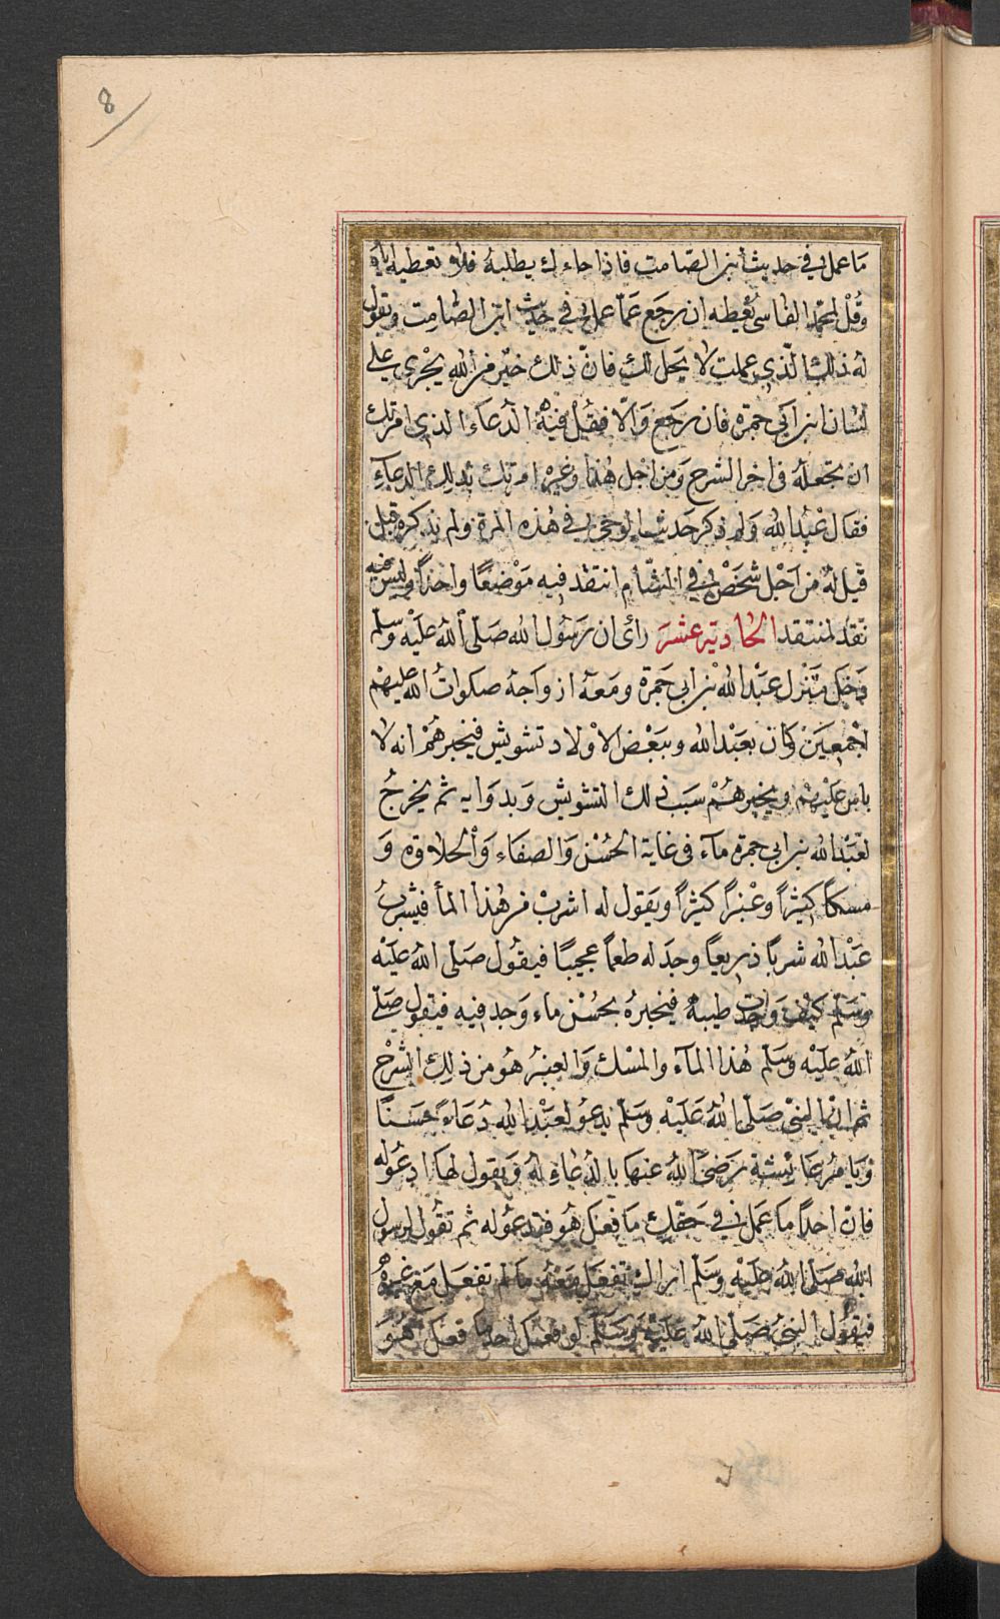 8
ما عمل في حديث أبن الصامت فاذا جاءك يطلبه فلا تعطيه اياه
وقُلْ لمحمّد الفاسى تُعْطِه ان رجَع عَمّا عمل في حديث ابن الصَّامِت وتقول
له ذلك الّذي عملت لا يَحل لك فانّ ذلك خيْر من الله يجْرى على
لسَان ابن ابى جمرة فان رجَع وَالّا فقُل فيه الدّعآء الذى امرتك
ان تجعله فى اخر الشرح وَمن اجل هٰذا وغيره امرتك بذلك الدعآء
فقال عبْد الله وَلم ذكر حَديث الوحي في هٰذه المرة ولم نذكره قبل
قيل لهُ من اَجْل شخَصْ في الشّام انتقد فيه مَوْضعًا واحدًا وليسَ فيه
نقد لمنتقد الحاديَة عشرَ رأى ان رَسُول الله صَلّى الله علَيْه وسلّم
دَخل منَزل عبْد الله بن ابى جَمرة ومَعَهُ ازواجهُ صَلوات الله عليهم
اجْمعِين وَكان بعَبْد الله وببَعْض الاوْلاد تشويش فيخبرهمْ انه لا
باس عليْهِم ويخبرهُمْ سَبَب ذلك التشويش وَبدوَايه ثم يخرجُ
لعَبْد الله بن ابى جمرة مآء فى غاية الحُسْن وَالصفاء وَالحلاوة وَ
مسكًا كثيرًا وعْنبرًا كثيرًا ويَقول له اشربْ من هٰذا المأ فيشربُ
عَبْد الله شربًا ذريعًا وجدَ له طعمًا عجيبًا فيقُول صَلى الله علَيْه
وسَلّم كيْف وَجدت طيبهُ فيخبرهُ بحُسْن ماء وَجد فيه فيقول صَلّى
اللهُ علَيْه وسَلّم هٰذا المآء والمسْك وَالعنبرُ هوُ من ذلِك الشرْح
ثم انّ النبىّ صَلّى اللهُ عَليَهْ وسَلّم يدعوُ لعَبْد الله دُعَاءً حسَنًا
وَيامُر عَائشة رَضىَ اللهُ عنها بالدُعاء لهُ وَيقول لها ادعُوله
فانّ احدًا ما عَمل في حَقّك ما فعَل هُو فتدعُوله ثم تقُول لرسول
الله صَلّى اللهُ عليَه وسَلم اراك تفعَل معَهُ ما لم تفعَل مَع غيره
فيقوُل النبىُ صَلّى اللهُ عَليْه وَسَلّم لو فعَل احد ما فعَل هُوَ